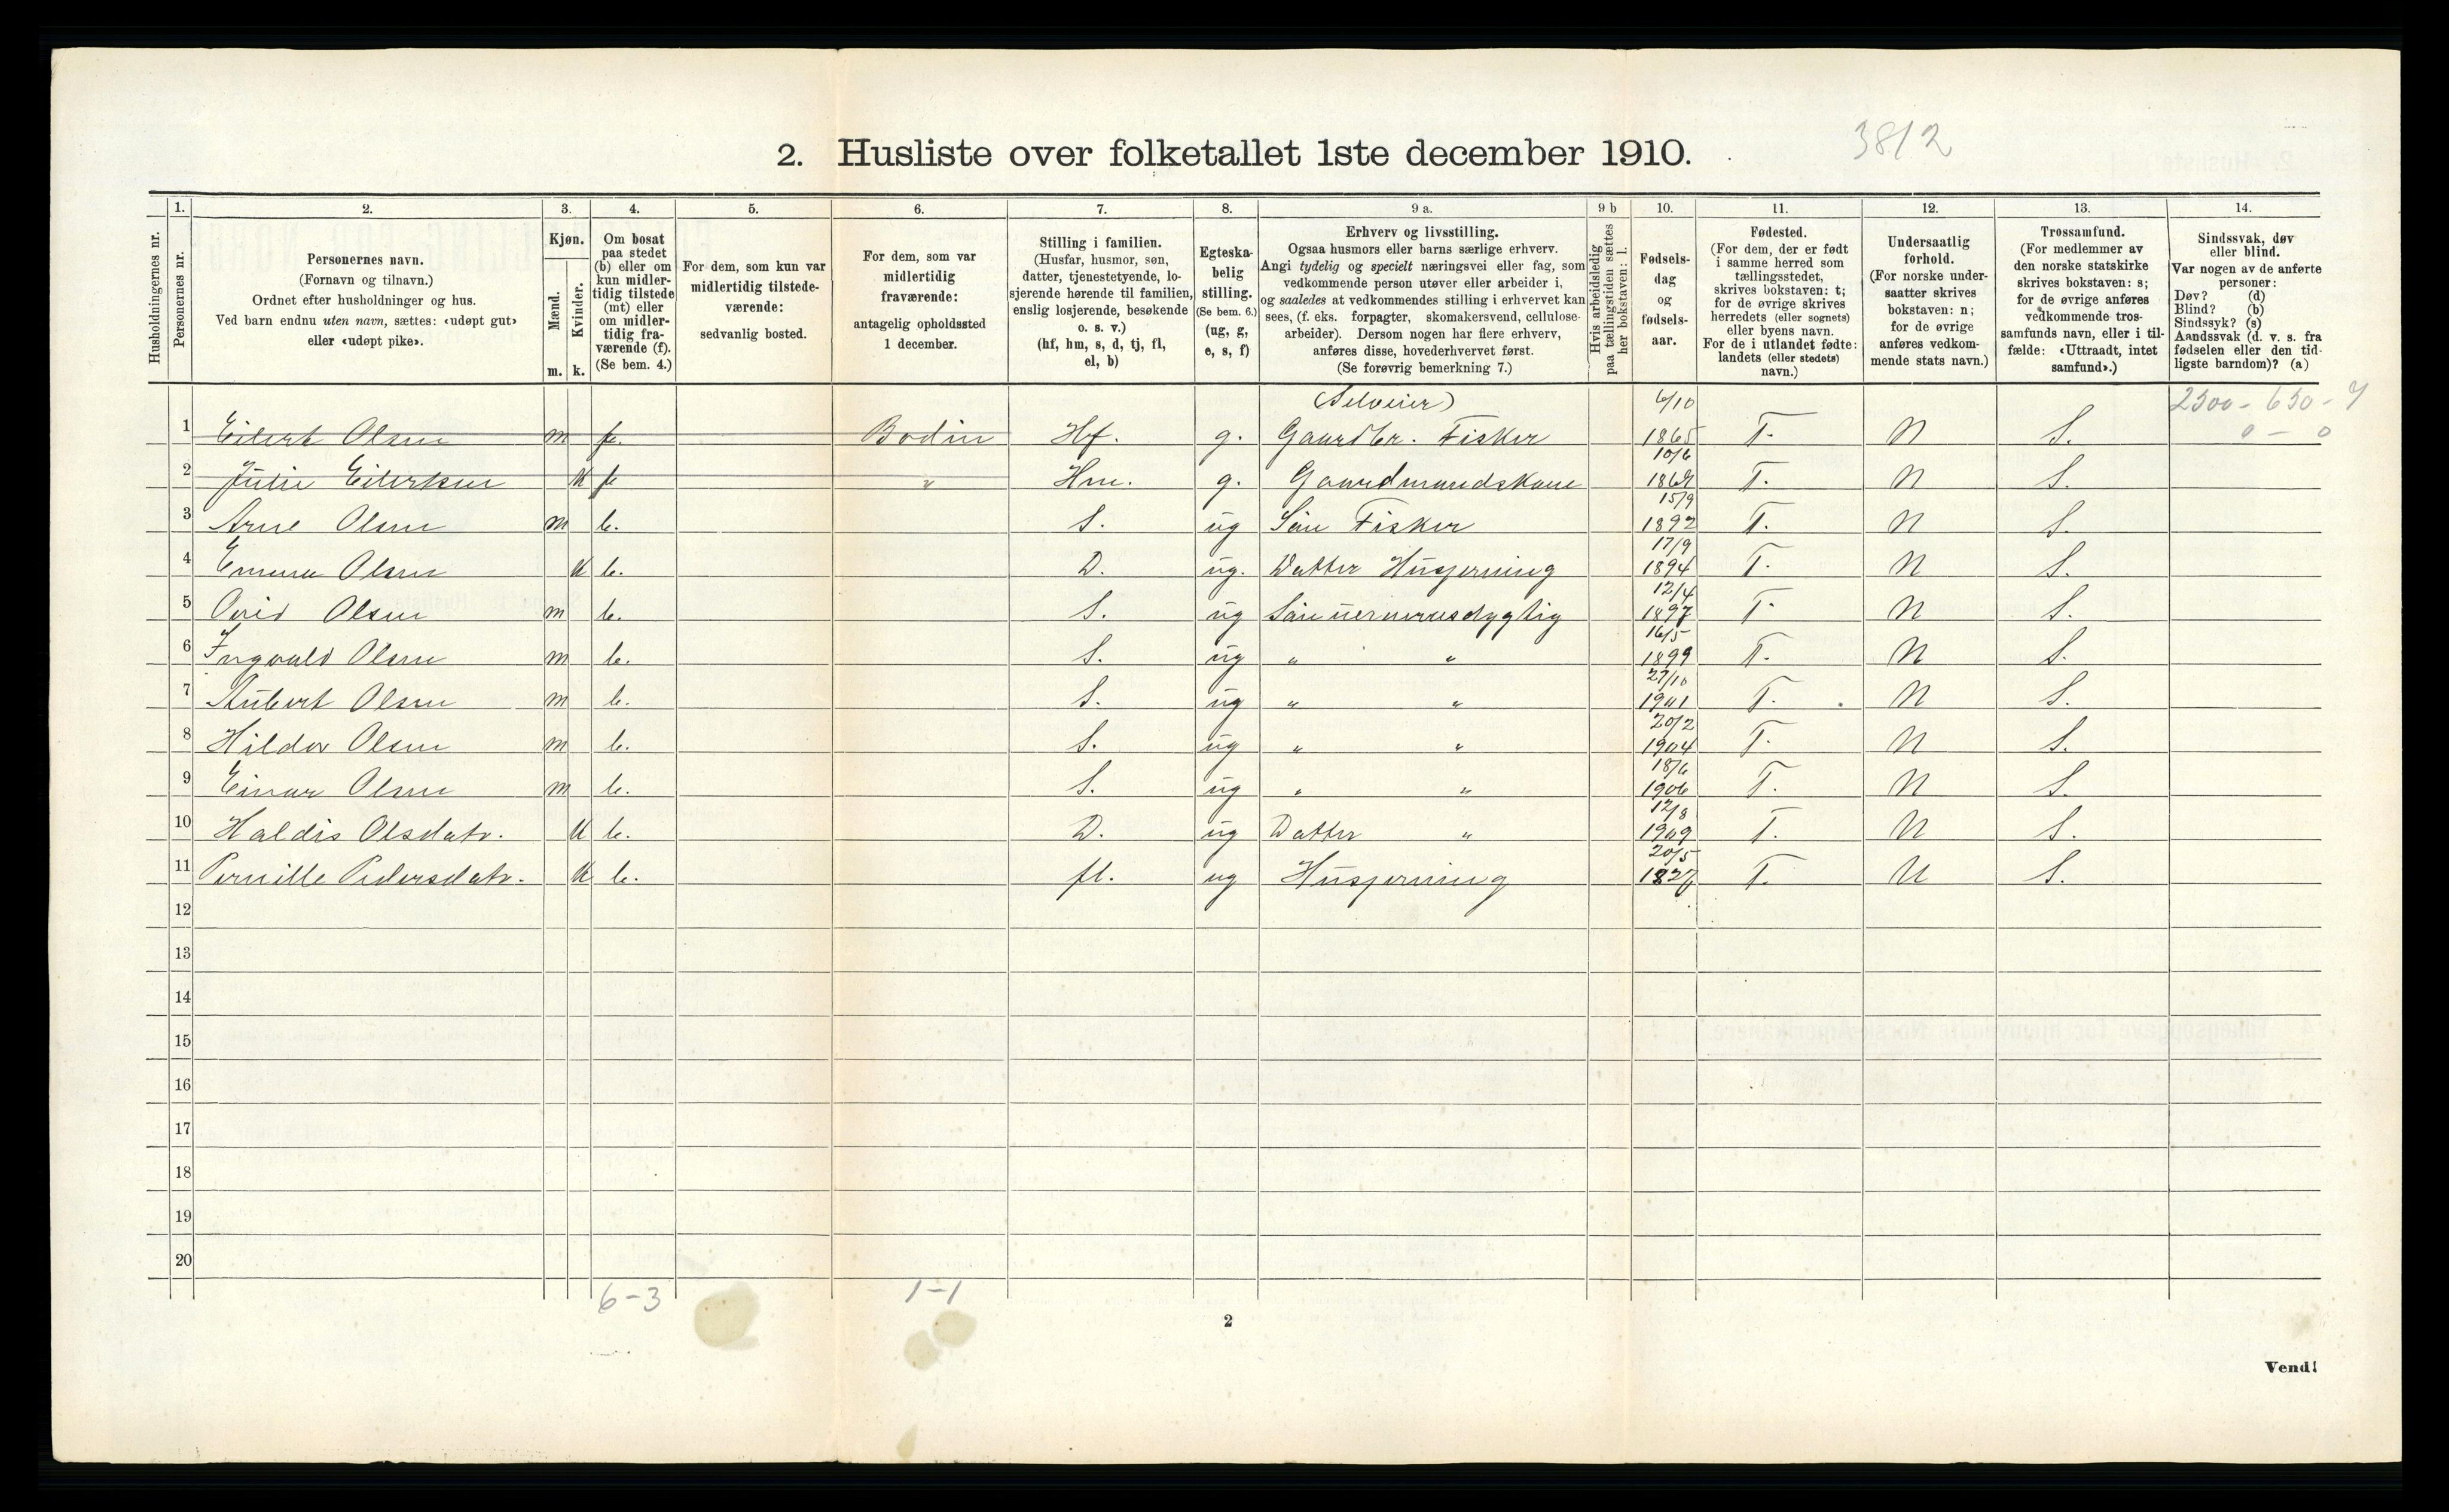 3812
2. Husliste over folketallet 1ste december 1910.
Husholdningernes nr.
1. Personernes nr.
2. Personernes navn.
(Fornavn og tilnavn.)
Ordnet efter husholdninger og hus.
Ved barn endnu uten navn, sættes: «udøpt gut»
eller «udøpt pike».
3. Kjøn.
Mænd. m.
Kvinder. k.
4. Om bosat
paa stedet
(b) eller om
kun midler-
tidig tilstede
(mt) eller
om midler-
tidig fra-
værende (f).
(Se bem. 4.)
5. For dem, som kun var
midlertidig tilstede-
værende:
sedvanlig bosted.
6. For dem, som var
midlertidig
fraværende:
antagelig opholdssted
1 december.
7. Stilling i familien.
(Husfar, husmor, søn,
datter, tjenestetyende, lo-
sjerende hørende til familien,
enslig losjerende, besøkende
o. s. v.)
(hf, hm, s, d, tj, fl,
el, b)
8. Egteska-
belig
stilling.
(Se bem. 6.)
(ug, g,
e, s, f)
9 a. Erhverv og livsstilling.
Ogsaa husmors eller barns særlige erhverv.
Angi tydelig og specielt næringsvei eller fag, som
vedkommende person utøver eller arbeider i,
og saaledes at vedkommendes stilling i erhvervet kan
sees, (f. eks. forpagter, skomakersvend, cellulose-
arbeider). Dersom nogen har flere erhverv,
anføres disse, hovederhvervet først.
(Se forøvrig bemerkning 7.)
9 b Hvis arbeidsledig
paa tællingstiden sættes
her bokstaven: l.
10. Fødsels-
dag
og
fødsels-
aar.
11. Fødested.
(For dem, der er født
i samme herred som
tællingsstedet,
skrives bokstaven: t;
for de øvrige skrives
herredets (eller sognets)
eller byens navn.
For de i utlandet fødte:
landets (eller stedets)
navn.)
12. Undersaatlig
forhold.
(For norske under-
saatter skrives
bokstaven: n;
for de øvrige
anføres vedkom-
mende stats navn.)
13. Trossamfund.
(For medlemmer av
den norske statskirke
skrives bokstaven: s;
for de øvrige anføres
vedkommende tros-
samfunds navn, eller i til-
fælde: «Uttraadt, intet
samfund».)
14. Sindssvak, døv
eller blind.
Var nogen av de anførte
personer:
Døv? (d)
Blind? (b)
Sindssyk? (s)
Aandssvak (d. v. s. fra
fødselen eller den tid-
ligste barndom)? (a)
(Selveier) 6/10 2300 - 650 - 7
1 Eilert Olsen m f. Bodin Hf. g. Gaardbr. Fisker 1865 T. N S. 0 - 0
10/6
2 Julie Eilertsen k f " Hm. g. Gaardmandskone T. N S.
15/9
3 Arne Olsen m b. S. ug Sön Fisker 1892 T. N S.
17/9
4 Emma Olsen k b. D. ug. Datter Husgerning 1894 T. N S.
12/4
5 Ovid Olsen m b. S. ug Sön uernervesdygtig 1897 T. N S.
16/5
6 Ingvald Olsen m b. S. ug " " 1899 T. N S.
27/10
7 Aubert Olsen m b. S. ug " " 1901 T. N S.
20/2
8 Hildor Olsen m b. S. ug " " 1904 T. N S.
18/6
9 Einar Olsen m b. S. ug " " 1906 T. N S.
12/8
10 Haldis Olsdatr. k b. D. ug Datter " 1909 T. N S.
20/5
11 Pernille Pedersdatr. k b. fl. ug Husgerning T. N S.
12
13
14
15
16
17
18
19
20
6-3 1-1
2
Vend!